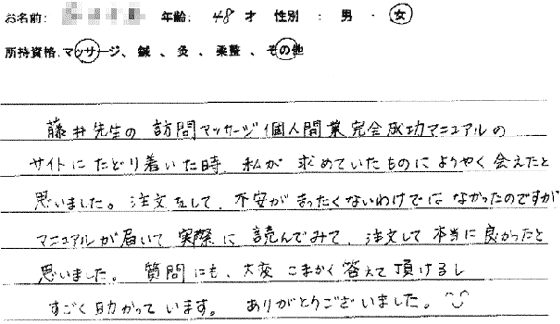 お名前: 年齢: 48才 性別: 男・女
所持資格:マッサージ、鍼、灸、柔整、その他
藤井先生の訪問マッサージ個人開業完全成功マニュアルの
サイトにたどり着いた時、私が求めていたものにようやく会えたと
思いました。注文をして、不安がまったくないわけではなかったのですが
マニュアルが届いて実際に読んでみて、注文して本当に良かったと
思いました。質問にも、大変こまかく答えて頂けるし
すごく助かっています。ありがとうございました。